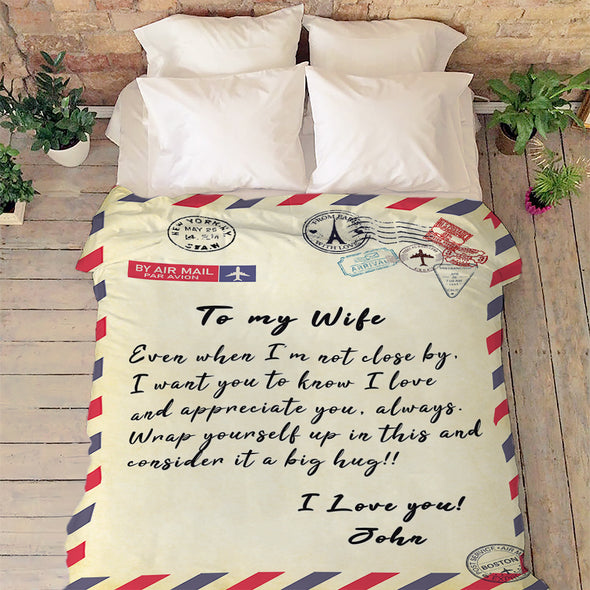 NEW YORK N.Y.
MAY 25
FROM PARIS
WITH LOVE
ARRIVAL
BY AIR MAIL
PAR AVION
To my Wife
Even when I m not close by,
I want you to know I love
and appreciate you, always.
Wrap yourself up in this and
consider it a big hug!!
I Love you!
John
POST SERVICE • AIR
BOSTON